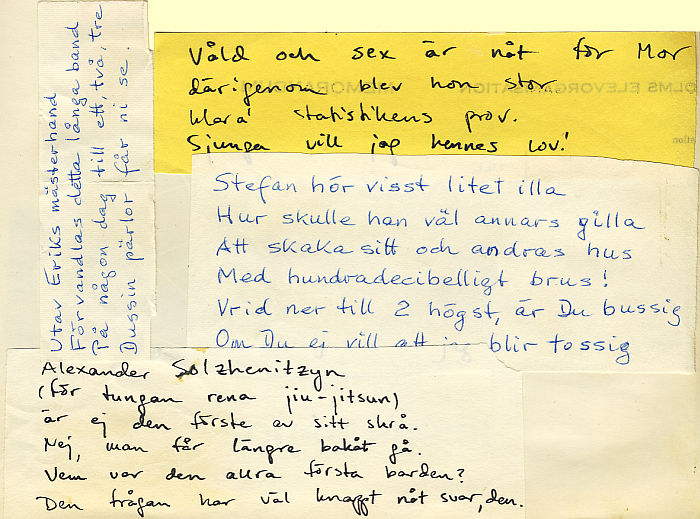 Utav Eriks mästerhand
Förvandlas detta långa band
På någon dag till ett, två, tre
Dussin pärlor får ni se.
Våld och sex är nåt för Mor
därigenom blev hon stor
klara statistikens prov.
Sjunga vill jag hennes lov!
OLMS ELEVORGANISATION
MEMORANDUM
Stefan hör visst litet illa
Hur skulle han väl annars gilla
Att skaka sitt och andras hus
Med hundradecibelligt brus!
Vrid ner till 2 högst, är Du bussig
Om Du ej vill att jag blir tossig
Alexander Solzhenitzyn
(för tungan rena jiu-jitsun)
är ej den förste av sitt skrå.
Nej, man får längre bakåt gå.
Vem var den allra första barden?
Den frågan har väl knappt nåt svar, den.